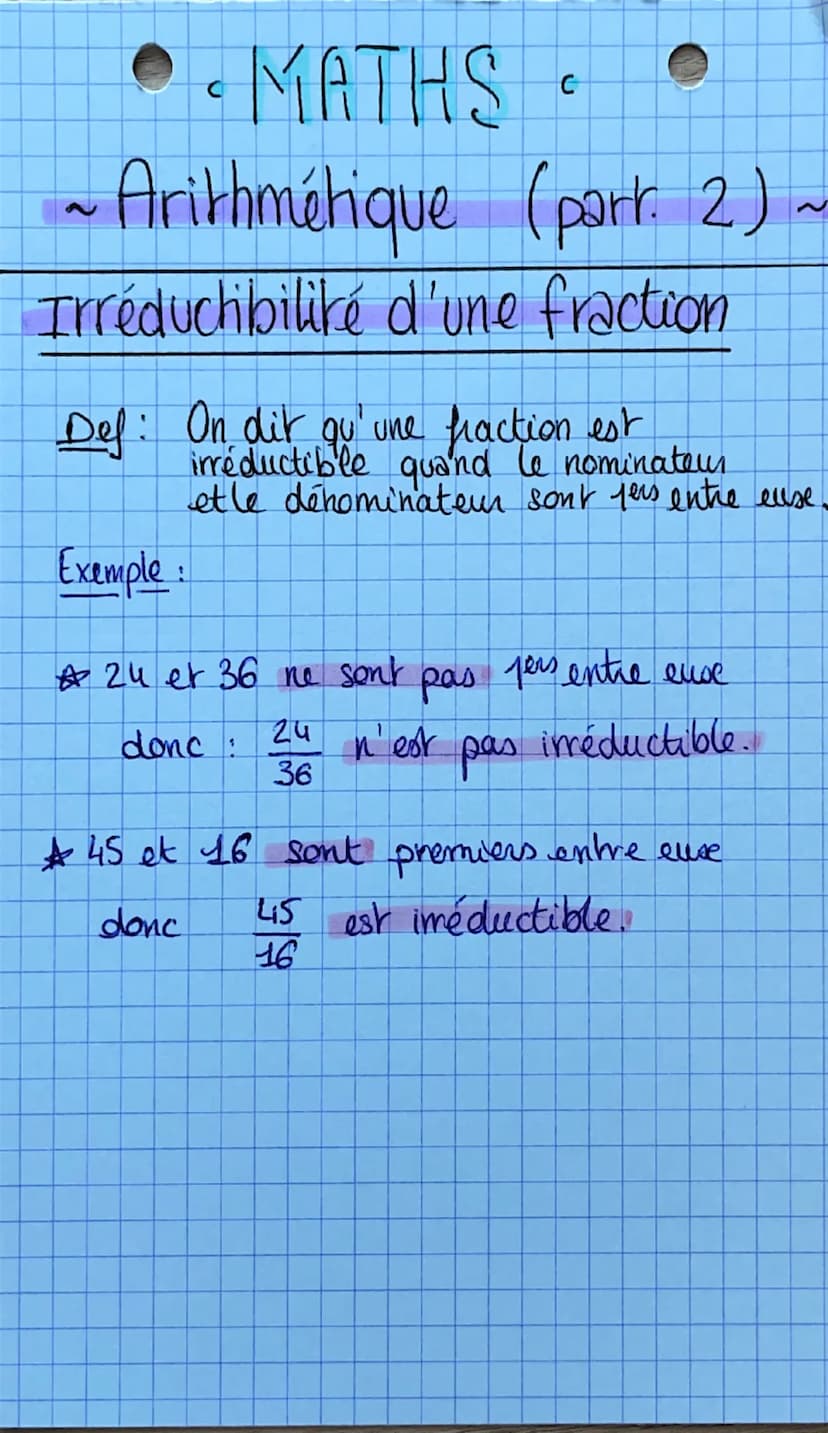 MATHS
~ Arithmétique (part. 2) ~
Irréductibilité d'une fraction
Def : On dit qu'une fraction est
irréductible quand le nominateur
et le dénominateur sont 1ers entre eux.
Exemple :
☆ 24 et 36 ne sont pas 1ers entre eux
donc : 24/36 n'est pas irréductible.
☆ 45 et 16 sont premiers entre eux
donc 45/16 est irréductible.